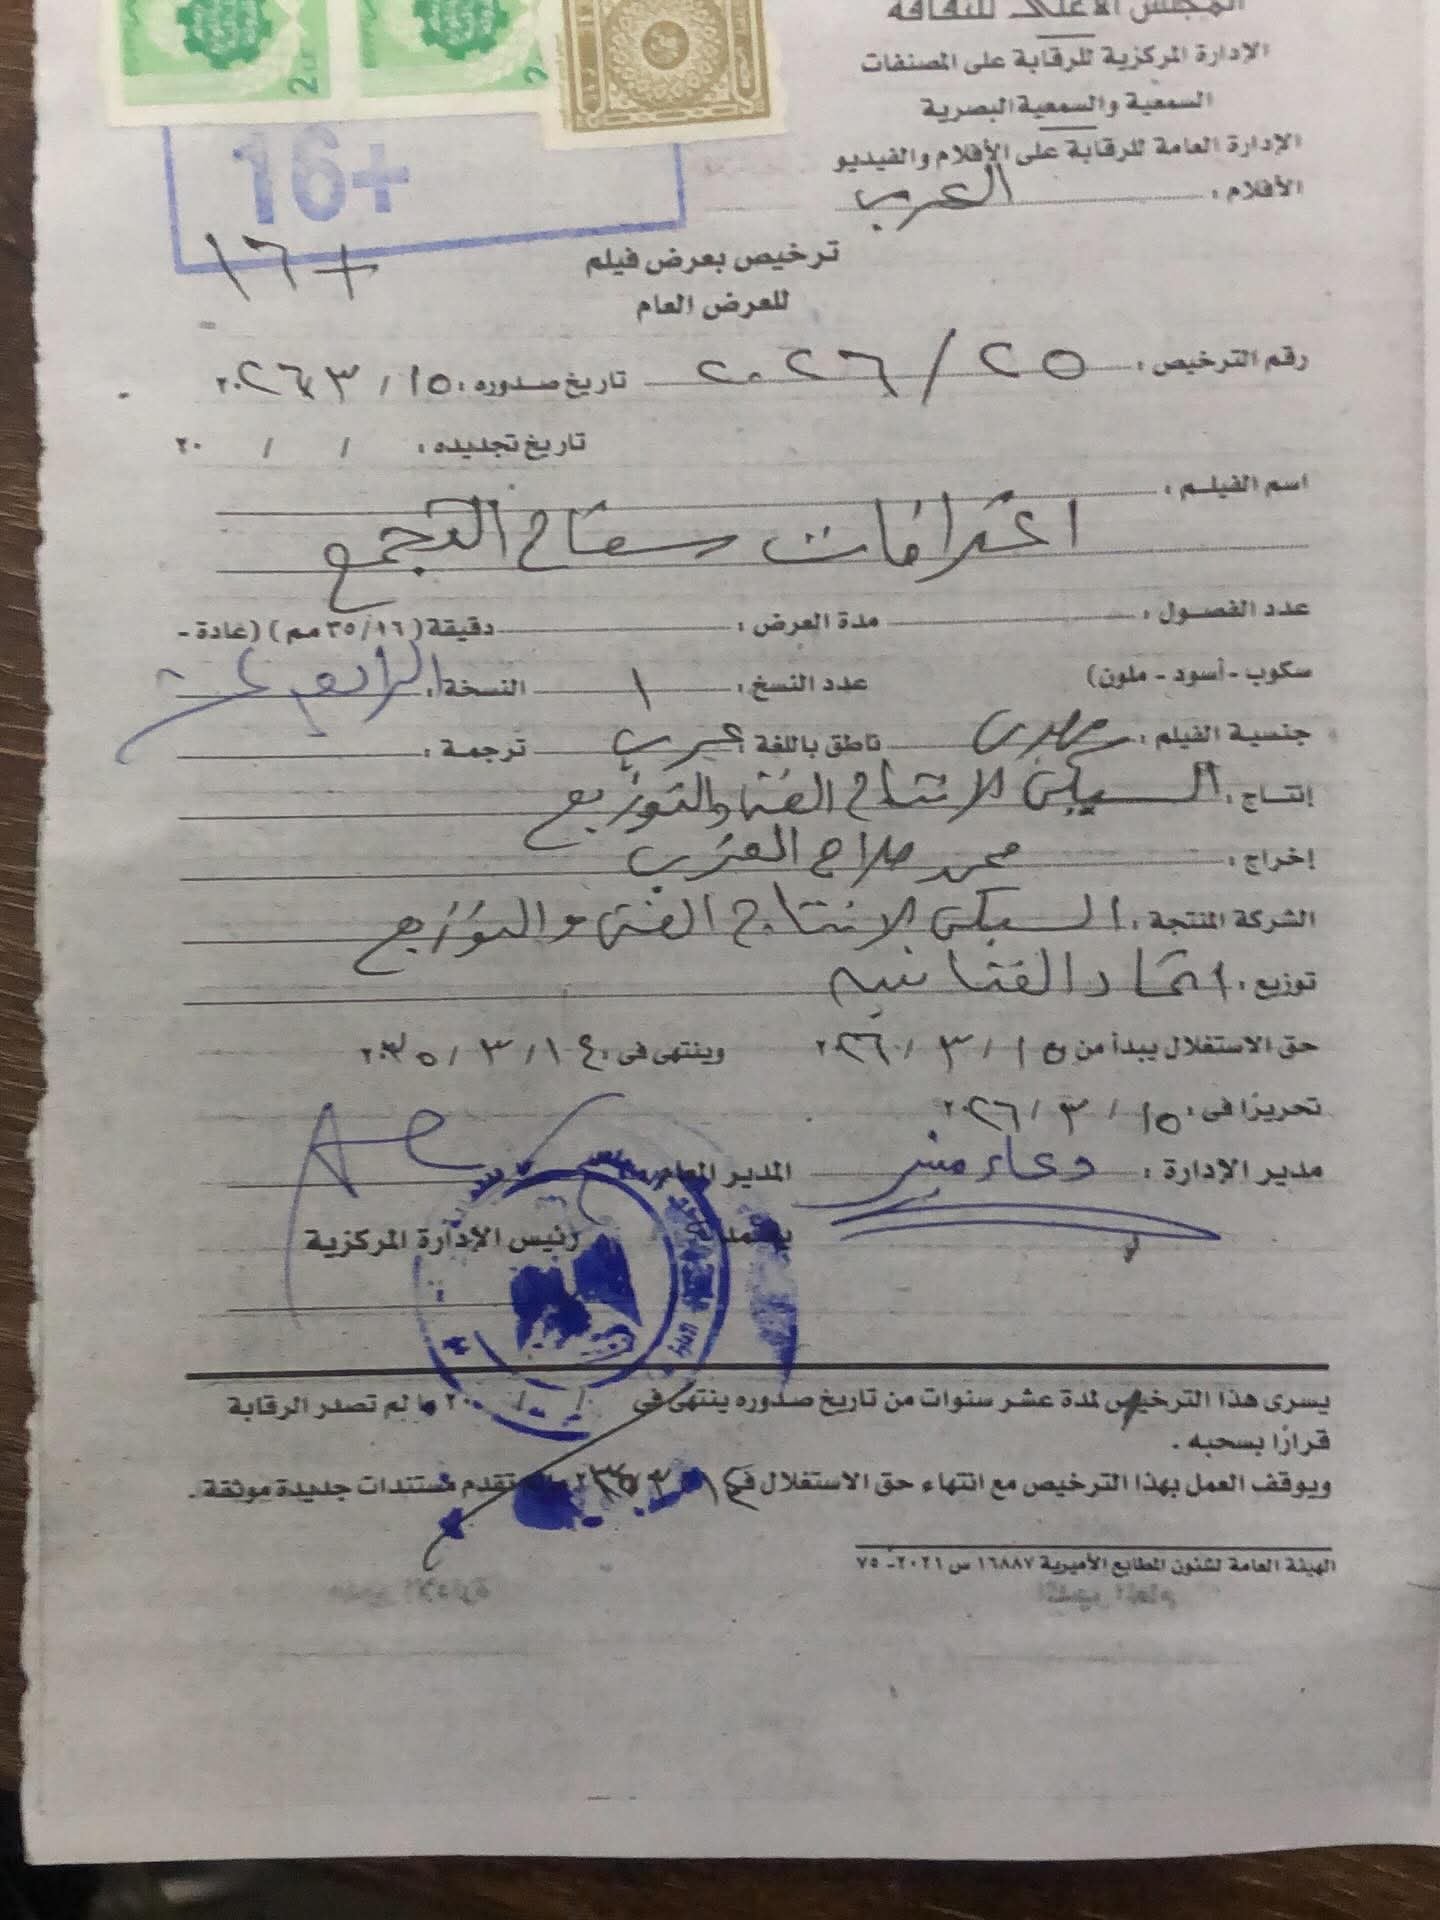 المجلس الأعلى للثقافة
الإدارة المركزية للرقابة على المصنفات
السمعية والسمعية البصرية
الإدارة العامة للرقابة على الأفلام والفيديو
الأفلام : العربي
2
2
16+
+١٦
ترخيص بعرض فيلم
للعرض العام
رقم الترخيص : ٢٥ / ٢٠٢٦ تاريخ صدوره : ١٥ / ٣ / ٢٠٢٦
تاريخ تجديده : / / ٢٠
اسم الفيلم :
اعترافات سفاح التجمع
عدد الفصول : مدة العرض : دقيقة (٣٥/١٦ مم) (عادة -
سكوب - أسود - ملون) عدد النسخ : ١ النسخة :
جنسية الفيلم : مصرى ناطق باللغة : عربى ترجمة :
إنتاج : السبكى للإنتاج الفنى والتوزيع
إخراج : محمد صلاح العزب
الشركة المنتجة : السبكى للإنتاج الفنى والتوزيع
توزيع : اتحاد الفنانين
حق الاستغلال يبدأ من ١٥ / ٣ / ٢٠٢٦ وينتهى فى ١٤ / ٣ / ٢٠٣٥
تحريرًا فى : ١٥ / ٣ / ٢٠٢٦
مدير الإدارة : دعاء منير المدير العام
يعتمد
رئيس الإدارة المركزية
يسرى هذا الترخيص لمدة عشر سنوات من تاريخ صدوره ينتهى فى / / ٢٠ ما لم تصدر الرقابة
قرارًا بسحبه .
ويوقف العمل بهذا الترخيص مع انتهاء حق الاستغلال فى ١٤ / ٣ / ٢٠٣٥ تقدم مستندات جديدة موثقة .
الهيئة العامة لشئون المطابع الأميرية ١٦٨٨٧ س ٢٠٢١ - ٧٥